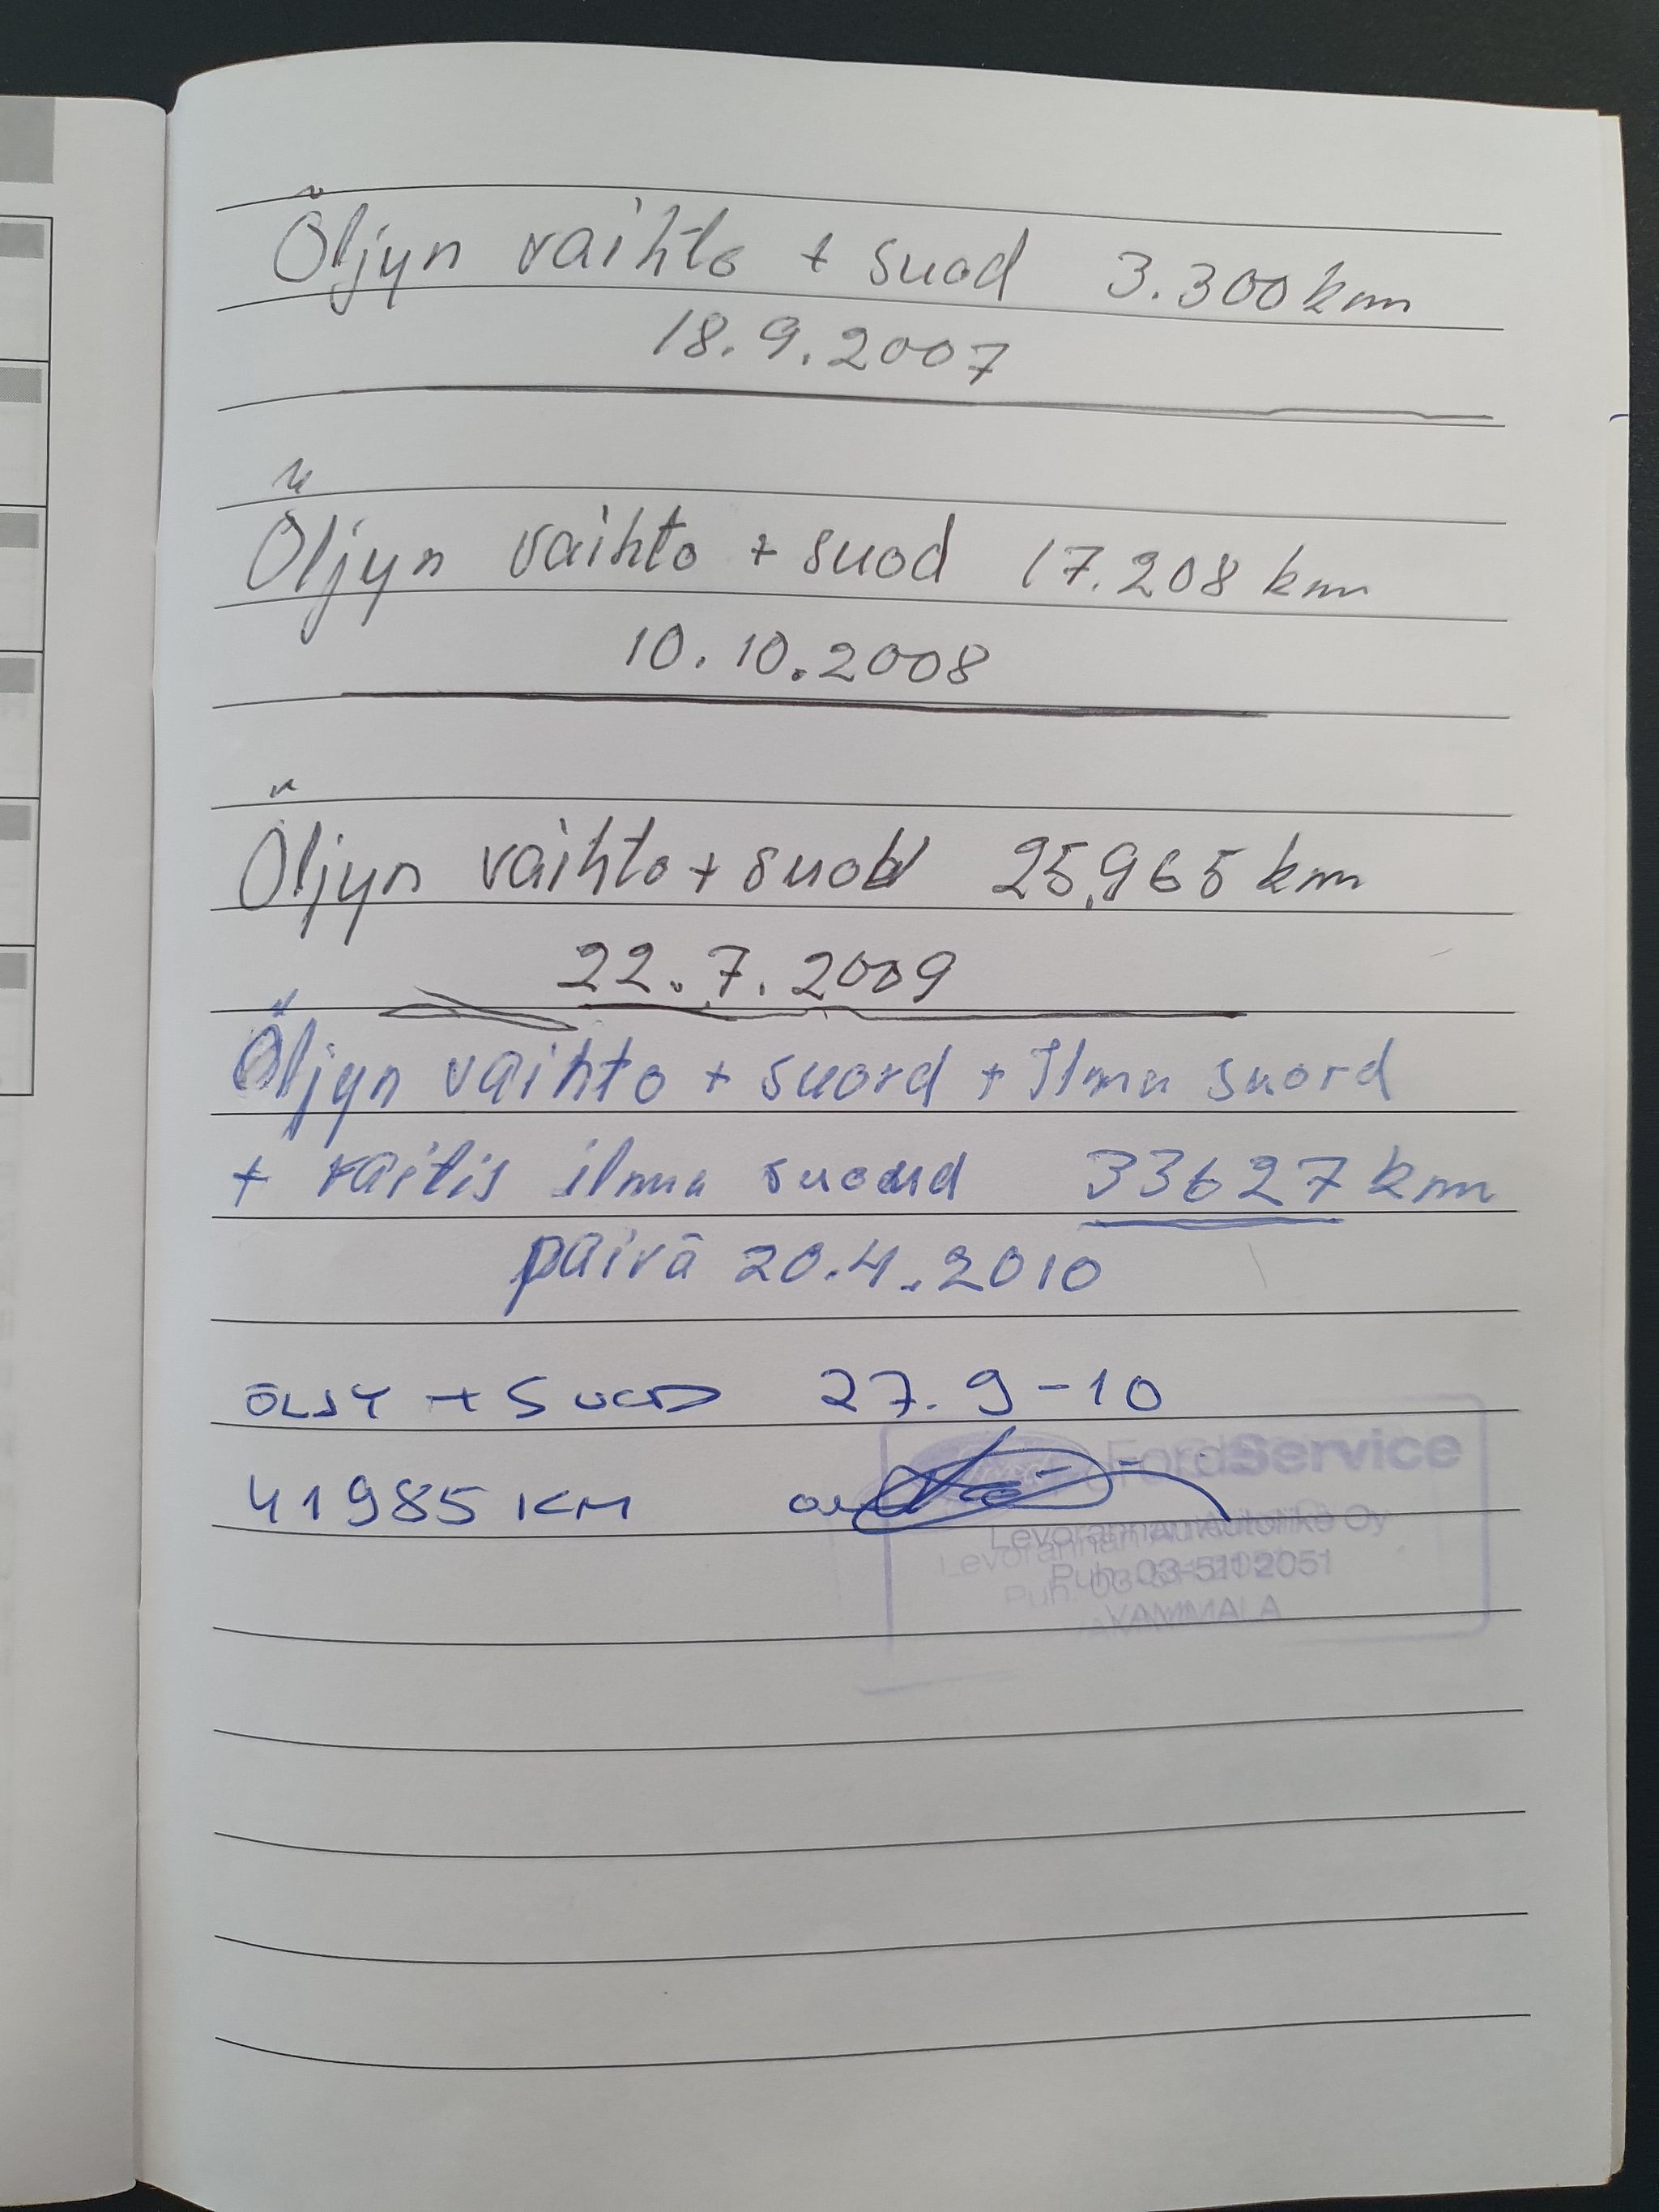 Öljyn vaihto + suod 3.300 km
18.9.2007
Öljyn vaihto + suod 17.208 km
10.10.2008
Öljyn vaihto + suod 25.965 km
22.7.2009
Öljyn vaihto + suord + Ilma suord
+ raitis ilma suoud 33627 km
päivä 20.4.2010
ÖLJY + SUOD 27.9-10
41985 KM
FordService
Levorannan Autoliike Oy
Puh. 03-511 2051
VAMMALA